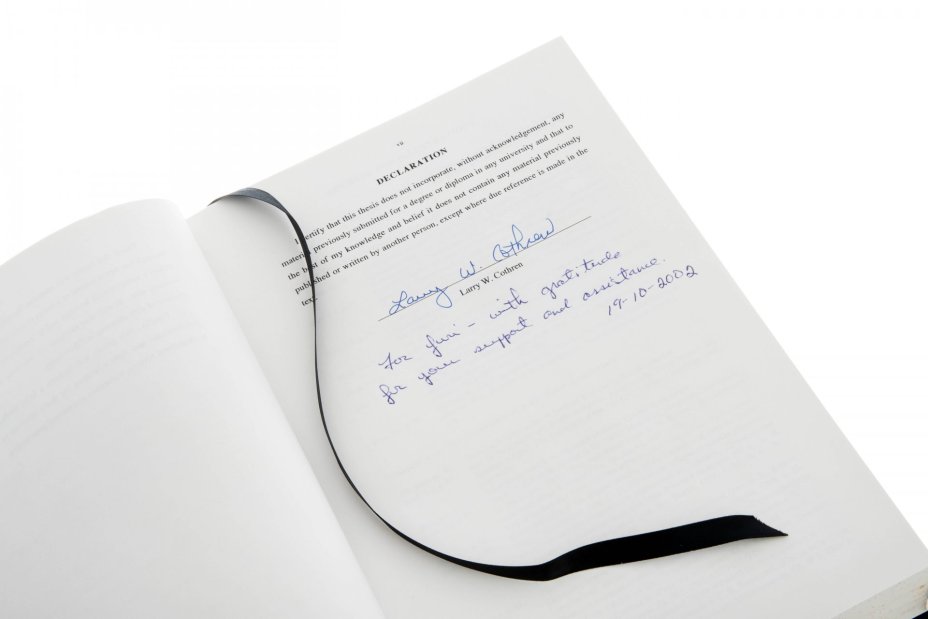 vii
DECLARATION
I certify that this thesis does not incorporate, without acknowledgement, any
material previously submitted for a degree or diploma in any university and that to
the best of my knowledge and belief it does not contain any material previously
published or written by another person, except where due reference is made in the
text.
Larry W. Cothren
Larry W. Cothren
For Juri - with gratitude
for your support and assistance.
19-10-2002